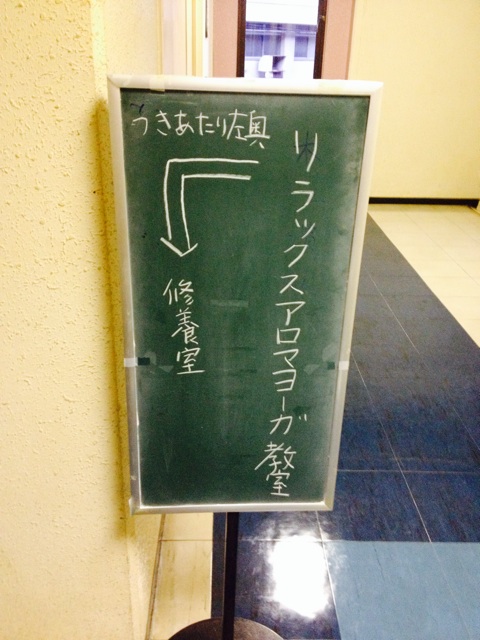 リラックスアロマヨーガ教室
つきあたり左奥
修養室